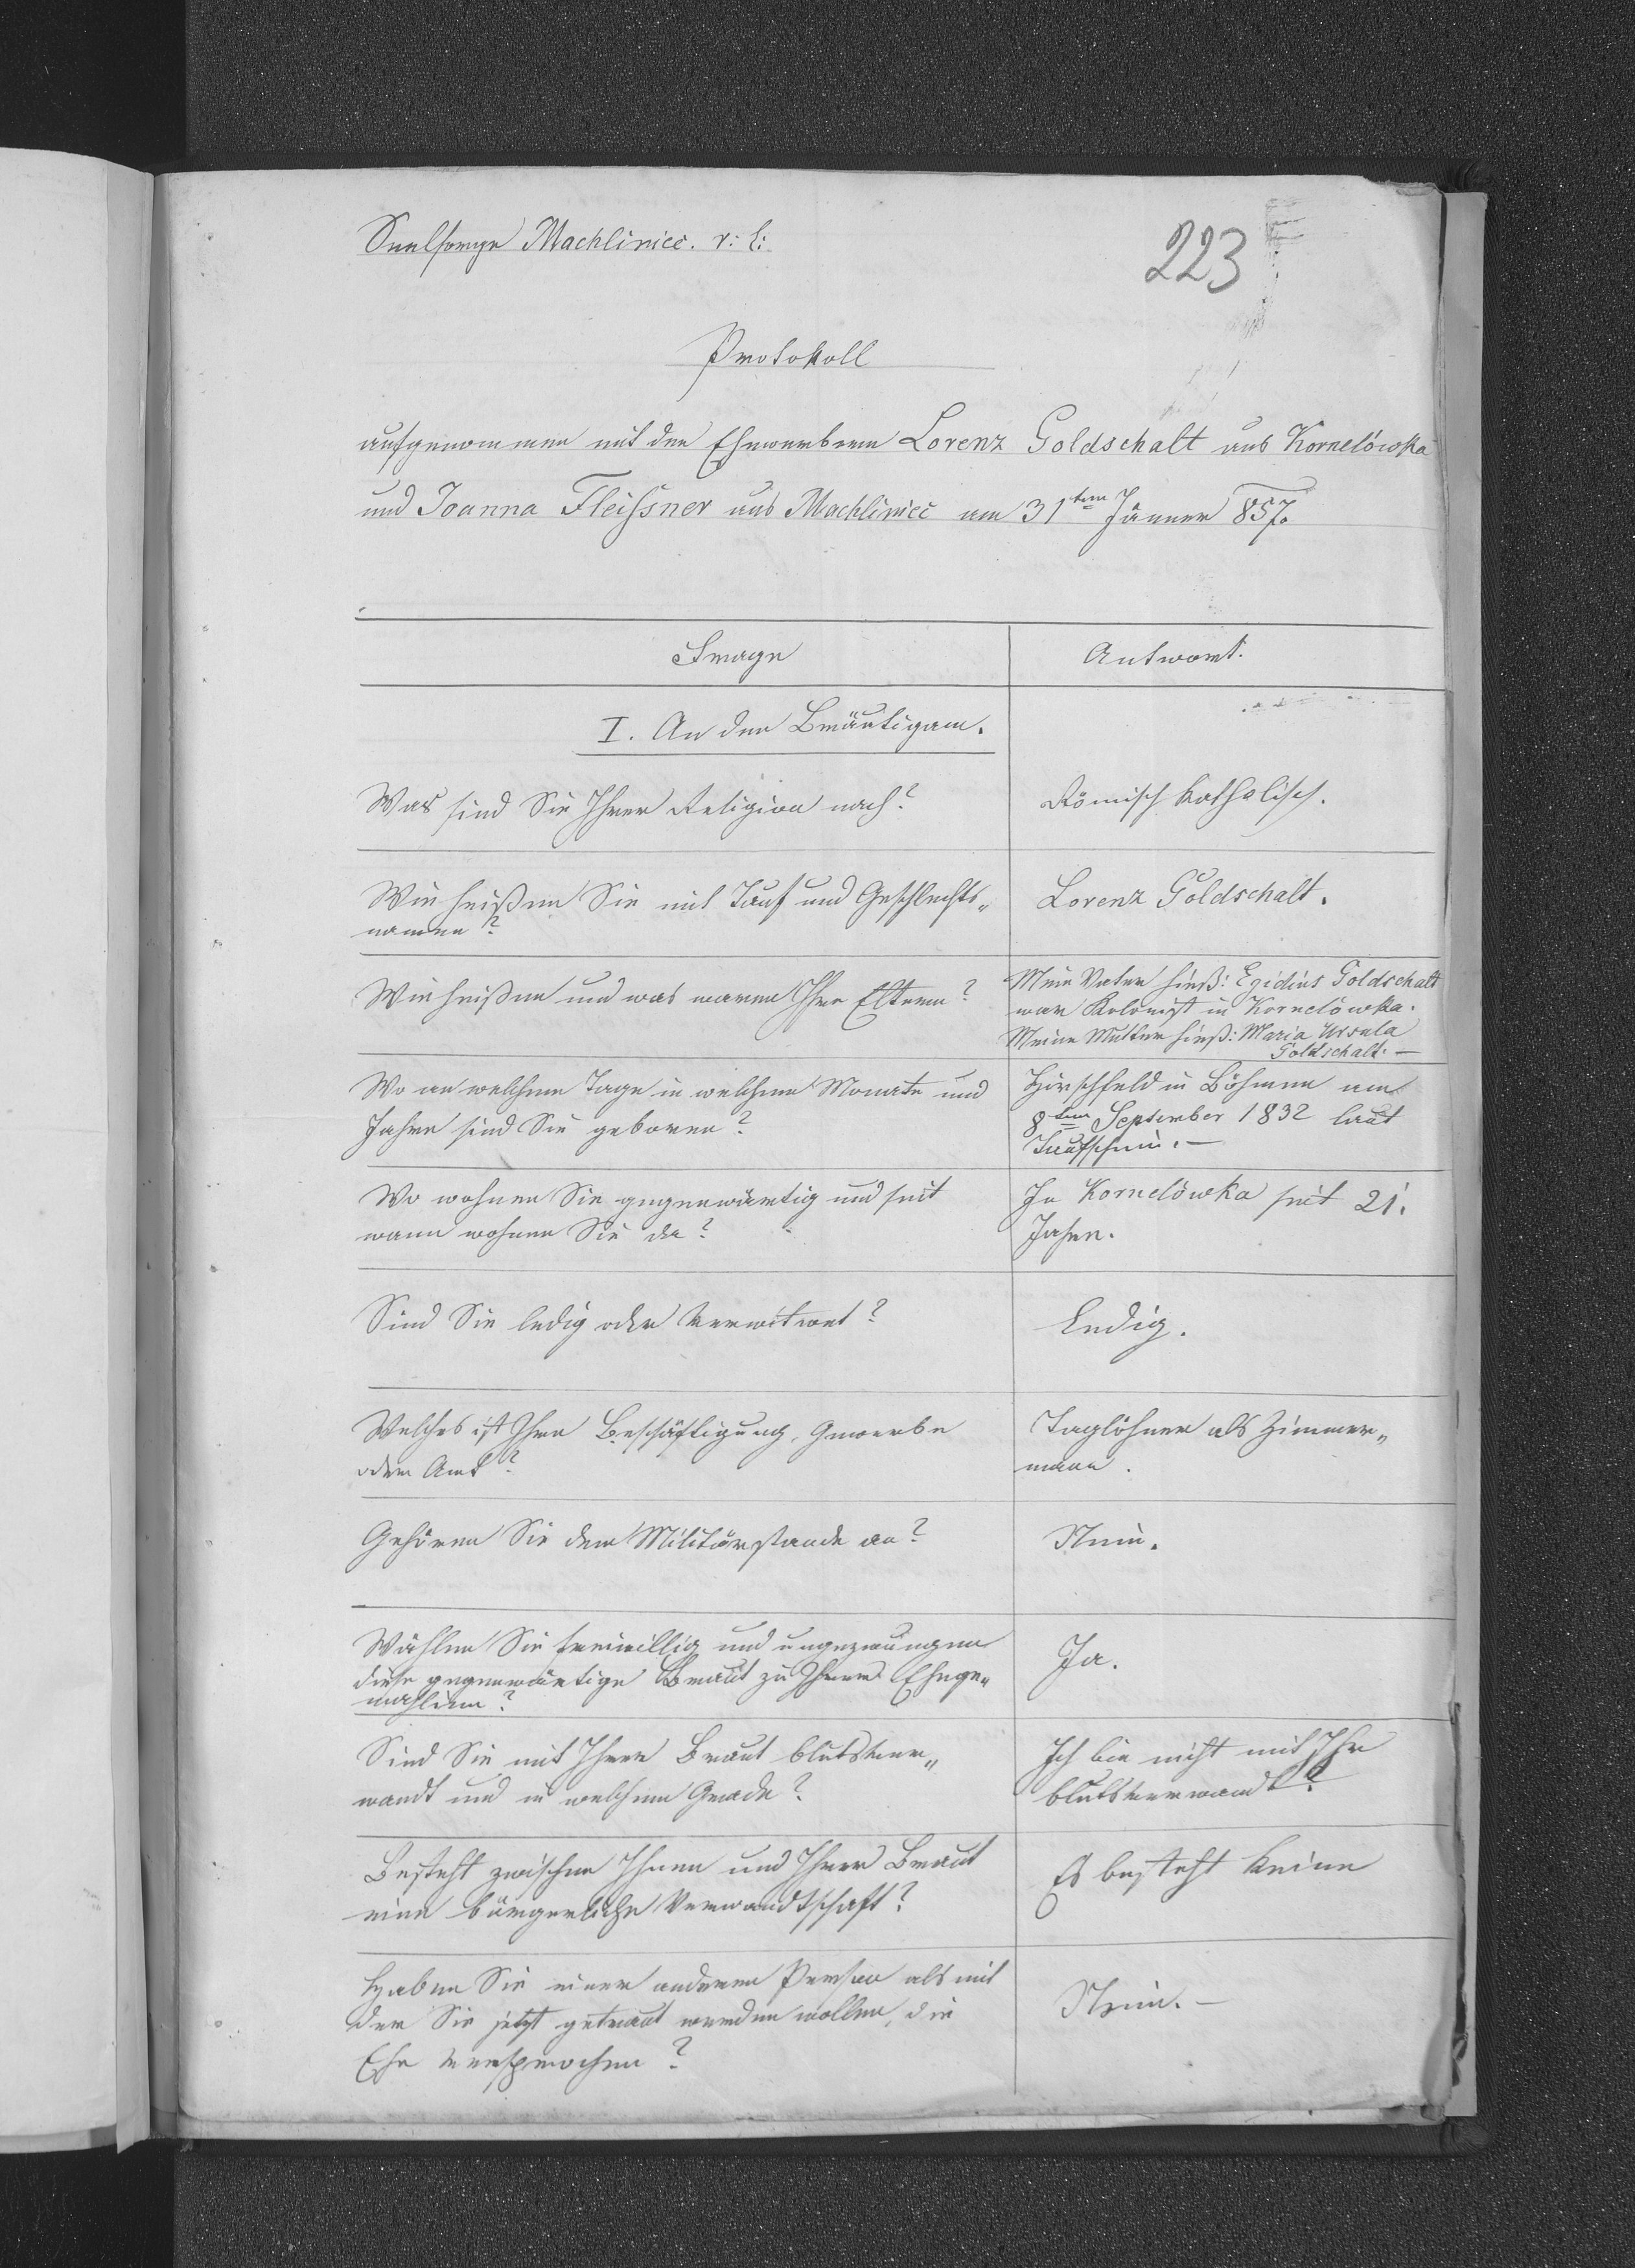 Seelsorge Machlinice. r: l:
223
Protokoll
aufgenommen mit den Ehewerbern Lorenz Goldschalt aus Kornelówka
und Joanna Fleißner aus Machliniec am 31ten Jänner 857.
Frage
Antwort.
I. An den Bräutigam.
Was sind Sie Ihrer Religion nach?
Römisch katholisch.
Wie heißen Sie mit Tauf und Geschlechts„
namen?
Lorenz Goldschalt.
Wie heißen und was waren Ihre Eltern?
Mein Vater hieß: Egidius Goldschalt
war Kolonist in Kornelówka.
Meine Mutter hieß: Maria Ursula
Goldschalt. —
Wo an welchem Tage in welchem Monate und
Jahre sind Sie geboren?
Hirschfeld in Böhmen am
8ten September 1832 laut
Taufschein. —
Wo wohnen Sie gegenwärtig und seit
wann wohnen Sie da?
In Kornelówka seit 21.
Jahren.
Sind Sie ledig oder verwitwet?
Ledig.
Welches ist Ihre Beschäftigung, Gewerbe
oder Amt?
Taglöhner als Zimmer„
mann.
Gehören Sie dem Militärstande an?
Nein.
Wählen Sie freiwillig und ungezwungen
diese gegenwärtige Braut zu Ihrer Ehege„
mahlinn?
Ja.
Sind Sie mit Ihrer Braut blutsver„
wandt und in welchem Grade?
Ich bin nicht mit Ihr
blutsverwandt?
Besteht zwischen Ihnen und Ihrer Braut
eine bürgerliche Verwandtschaft?
Es besteht keine
Haben Sie einer anderen Person als mit
der Sie jetzt getraut werden wollen, die
Ehe versprochen?
Nein. —